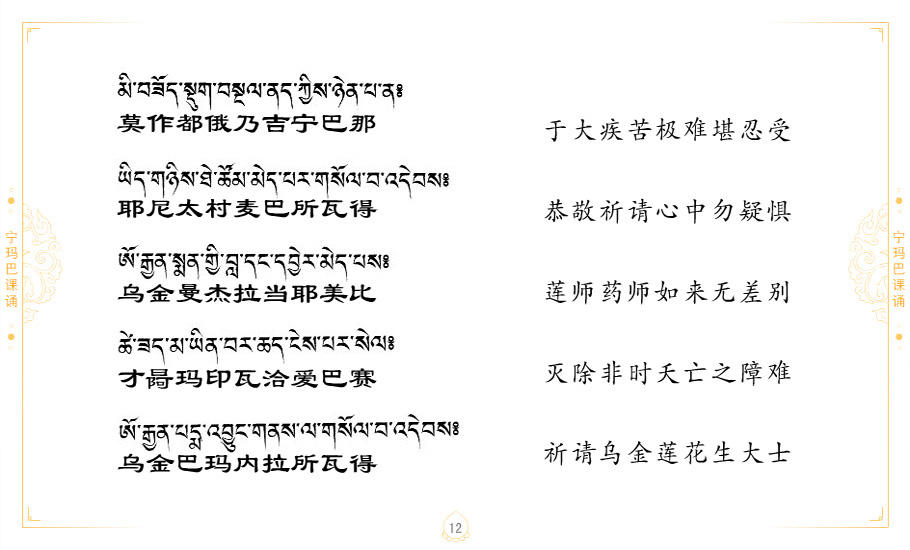 མི་བཟོད་སྡུག་བསྔལ་ནད་ཀྱིས་ཉེན་པ་ན༔
莫作都俄乃吉宁巴那
于大疾苦极难堪忍受
ཡིད་གཉིས་ཐེ་ཚོམ་མེད་པར་གསོལ་བ་འདེབས༔
耶尼太村麦巴所瓦得
恭敬祈请心中勿疑惧
ཨོ་རྒྱན་སྨན་གྱི་བླ་དང་དབྱེར་མེད་པས༔
乌金曼杰拉当耶美比
莲师药师如来无差别
ཚེ་ཟད་མ་ཡིན་བར་ཆད་ངེས་པར་སེལ༔
才噶玛印瓦洽爱巴赛
灭除非时夭亡之障难
ཨོ་རྒྱན་པདྨ་འབྱུང་གནས་ལ་གསོལ་བ་འདེབས༔
乌金巴玛内拉所瓦得
祈请乌金莲花生大士
宁玛巴课诵
宁玛巴课诵
12